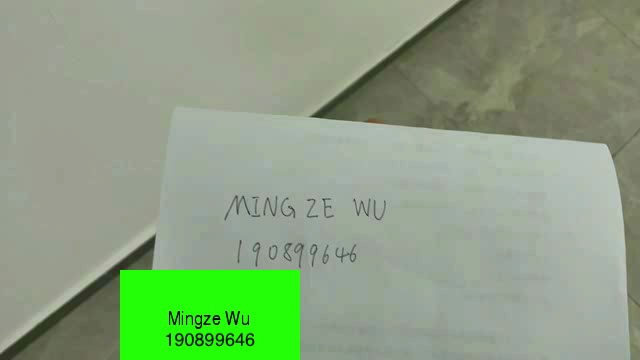 MINGZE WU
190899646
Mingze Wu
190899646